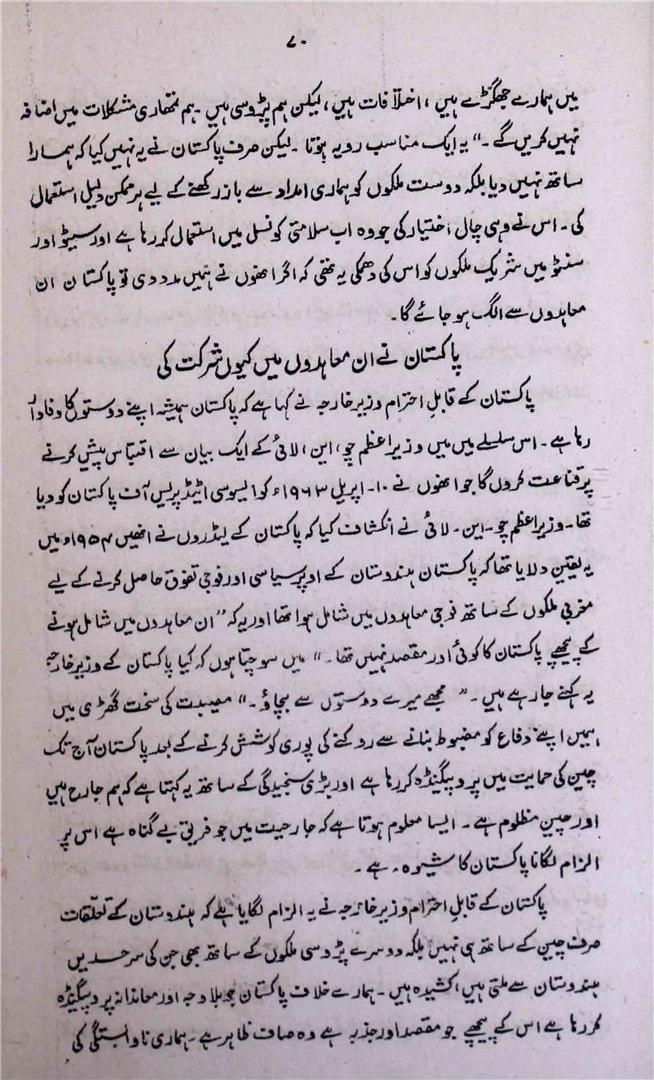 ۷۰
میں ہمارے جھگڑے ہیں، اختلافات ہیں، لیکن ہم پڑوسی ہیں۔ ہم تمھاری مشکلات میں اضافہ
نہیں کریں گے۔" یہ ایک مناسب رویہ ہوتا۔ لیکن صرف پاکستان نے یہ نہیں کیا کہ ہمارا
ساتھ نہیں دیا بلکہ دوست ملکوں کو ہماری امداد سے باز رکھنے کے لیے ہر ممکن دلیل استعمال
کی۔ اس نے وہی چال اختیار کی جو وہ اب سلامتی کونسل میں استعمال کر رہا ہے اور سیٹو اور
سنٹو میں شریک ملکوں کو اس کی دھمکی یہ تھی کہ اگر انھوں نے ہمیں مدد دی تو پاکستان ان
معاہدوں سے الگ ہو جائے گا۔
پاکستان نے ان معاہدوں میں کیوں شرکت کی
پاکستان کے قابلِ احترام وزیر خارجہ نے کہا ہے کہ پاکستان ہمیشہ اپنے دوستوں کا وفادار
رہا ہے۔ اس سلسلے میں میں وزیراعظم چو، این، لائی کے ایک بیان سے اقتباس پیش کرنے
پر قناعت کروں گا جو انھوں نے ۱۰۔ اپریل ۱۹۶۳ء کو ایسوسی ایٹیڈ پریس آف پاکستان کو دیا
تھا۔ وزیراعظم چو۔ این۔ لائی نے انکشاف کیا کہ پاکستان کے لیڈروں نے انھیں ۱۹۵۴ء میں
یہ یقین دلایا تھا کہ پاکستان ہندوستان کے اوپر سیاسی اور فوجی تفوق حاصل کرنے کے لیے
مغربی ملکوں کے ساتھ فوجی معاہدوں میں شامل ہوا تھا اور یہ کہ "ان معاہدوں میں شامل ہونے
کے پیچھے پاکستان کا کوئی اور مقصد نہیں تھا۔" میں سوچتا ہوں کہ کیا پاکستان کے وزیر خارجہ
یہ کہنے جا رہے ہیں۔ "مجھے میرے دوستوں سے بچاؤ۔" مصیبت کی سخت گھڑی میں
ہمیں اپنے دفاع کو مضبوط بنانے سے روکنے کی پوری کوشش کرنے کے بعد پاکستان آج تک
چین کی حمایت میں پروپیگنڈہ کر رہا ہے اور بڑی سنجیدگی کے ساتھ یہ کہتا ہے کہ ہم جارح ہیں
اور چین مظلوم ہے۔ ایسا معلوم ہوتا ہے کہ جارحیت میں جو فریق بے گناہ ہے اس پر
الزام لگانا پاکستان کا شیوہ ہے۔
پاکستان کے قابلِ احترام وزیر خارجہ نے یہ الزام لگایا ہے کہ ہندوستان کے تعلقات
صرف چین کے ساتھ ہی نہیں بلکہ دوسرے پڑوسی ملکوں کے ساتھ بھی جن کی سرحدیں
ہندوستان سے ملتی ہیں، کشیدہ ہیں۔ ہمارے خلاف پاکستان جو بلا وجہ اور معاندانہ پروپیگنڈہ
کر رہا ہے اس کے پیچھے جو مقصد اور جذبہ ہے وہ صاف ظاہر ہے۔ ہماری ناوابستگی کی